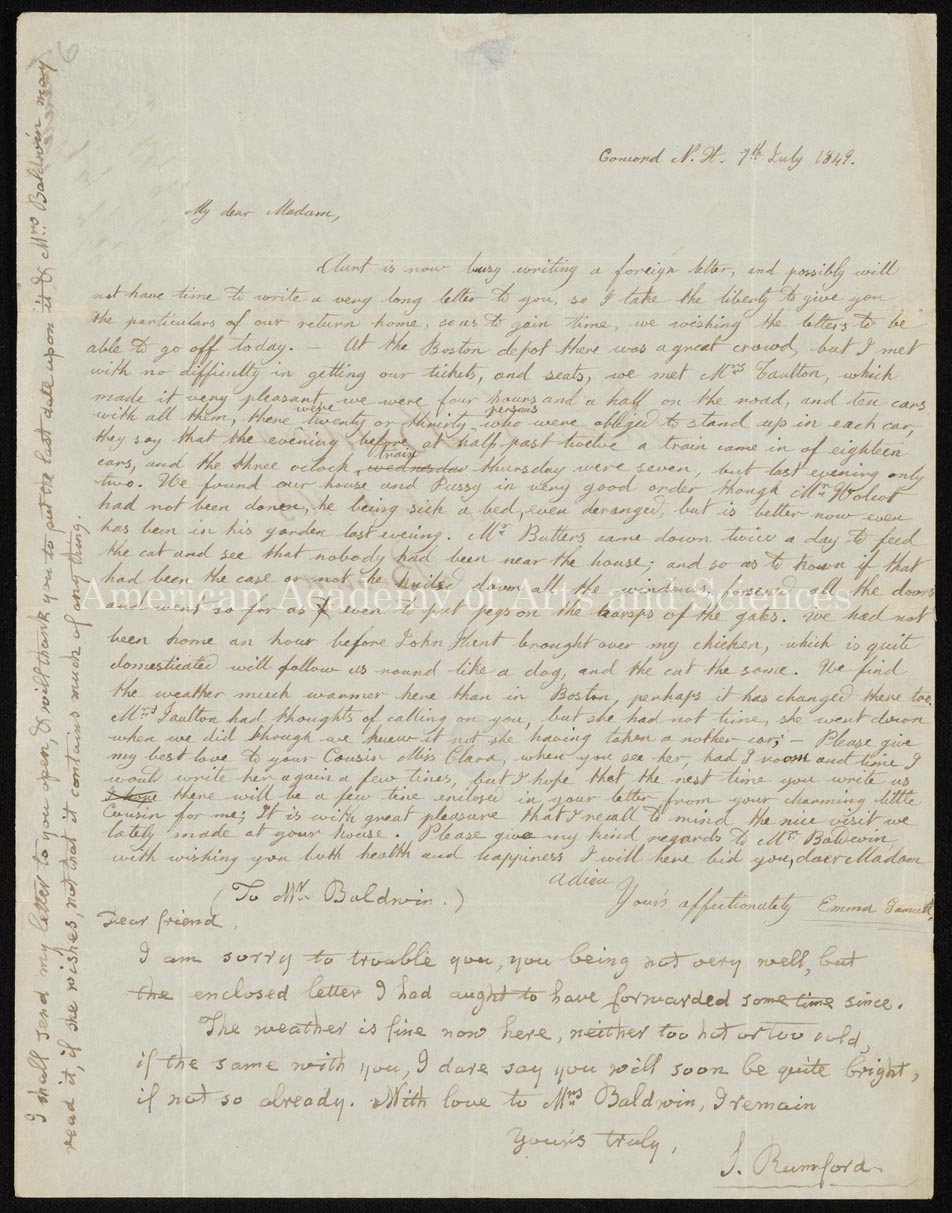 6
Concord N. H. 7th July 1849.
My dear Madam,
Aunt is now busy writing a foreign letter, and possibly will
not have time to write a very long letter to you, so I take the liberty to give you
the particulars of our return home, so as to gain time, we wishing the letters to be
able to go off today. — At the Boston depot there was a great crowd, but I met
with no difficulty in getting our tickets, and seats, we met Mrs which
made it very pleasant, we were four hours and a half on the road, and ten cars
with all them, there were twenty or thirty persons who were obliged to stand up in each car,
they say that the evening before, at half past twelve a train came in of eighteen
cars, and the three oclock train wednesday thursday were seven, but last evening only
two. We found our house and Pussy in very good order though Mr
had not been down, he being sick a bed, even deranged, but is better now even
has been in his garden last evening. Mr Butters came down twice a day to feed
the cat and see that nobody had been near the house; and so as to know if that
had been the case or not he nailed down all the windows, all the doors
and went so far as even to put pegs on the of the gates. We had not
been home an hour before John brought over my chicken, which is quite
domesticated will follow us round like a dog, and the cat the same. We find
the weather much warmer here than in Boston, perhaps it has changed there too.
Mrs had thoughts of calling on you, but she had not time, she went down
when we did though we knew it not she having taken a nother car; — Please give
my best love to your Cousin Miss Clara, when you see her, had I room and time I
would write her again a few lines, but I hope that the next time you write us
I hope there will be a few line enclosed in your letter from your charming little
Cousin for me; It is with great pleasure that I recall to mind the nice visit we
lately made at your house. Please give my kind regards to Mr. Baldwin
with wishing you both health and happiness I will here bid you, daer Madam
adieu
Yours affectionately Emma
(To Mr. Baldwin.)
Dear friend,
I am sorry to trouble you, you being not very well, but
the enclosed letter I had aught to have forwarded some time since.
The weather is fine now here, neither too hot or too cold,
if the same with you, I dare say you will soon be quite bright,
if not so already. With love to Mrs Baldwin, I remain
Yours truly,
S. Rumford
I shall send my letter to you open, & will thank you to put the last date upon it & Mrs Baldwin may
read it, if she wishes, not that it contains much of any thing.
American Academy of Arts and Sciences